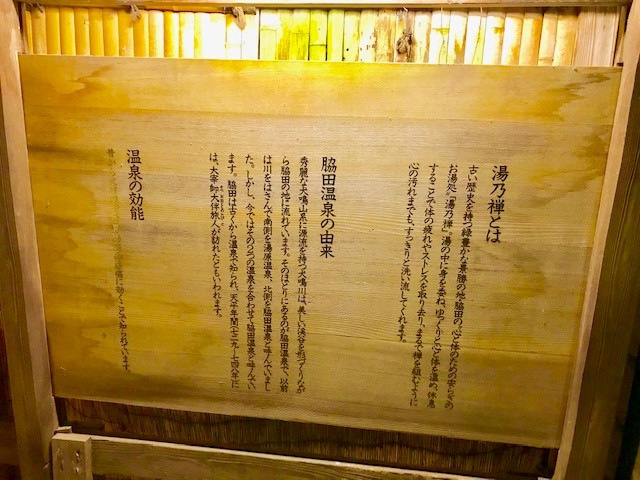 湯乃禅とは
古い歴史を持つ緑豊かな景勝の地脇田の、心と体のための安らぎの
お湯処「湯乃禅」。湯の中に身を委ね、ゆっくりと心と体を温め、休息
することで体の疲れやストレスを取り去り、まるで禅を組むように
心の汚れまでも、すっきりと洗い流してくれます。
脇田温泉の由来
秀麗な犬鳴山系に源流を持つ犬鳴川は、美しい渓谷を形づくりなが
ら脇田の地に流れています。そのほとりにあるのが脇田温泉で、以前
は川をはさんで南側を湯原温泉、北側を脇田温泉と呼んでいまし
た。しかし、今ではその2つの温泉を合わせて脇田温泉と呼んでい
ます。脇田は古くから温泉で知られ、天平年間(七二九〜七四八年)に
は、大宰帥大伴旅人が訪れたともいわれます。
温泉の効能
効くことで知られています。